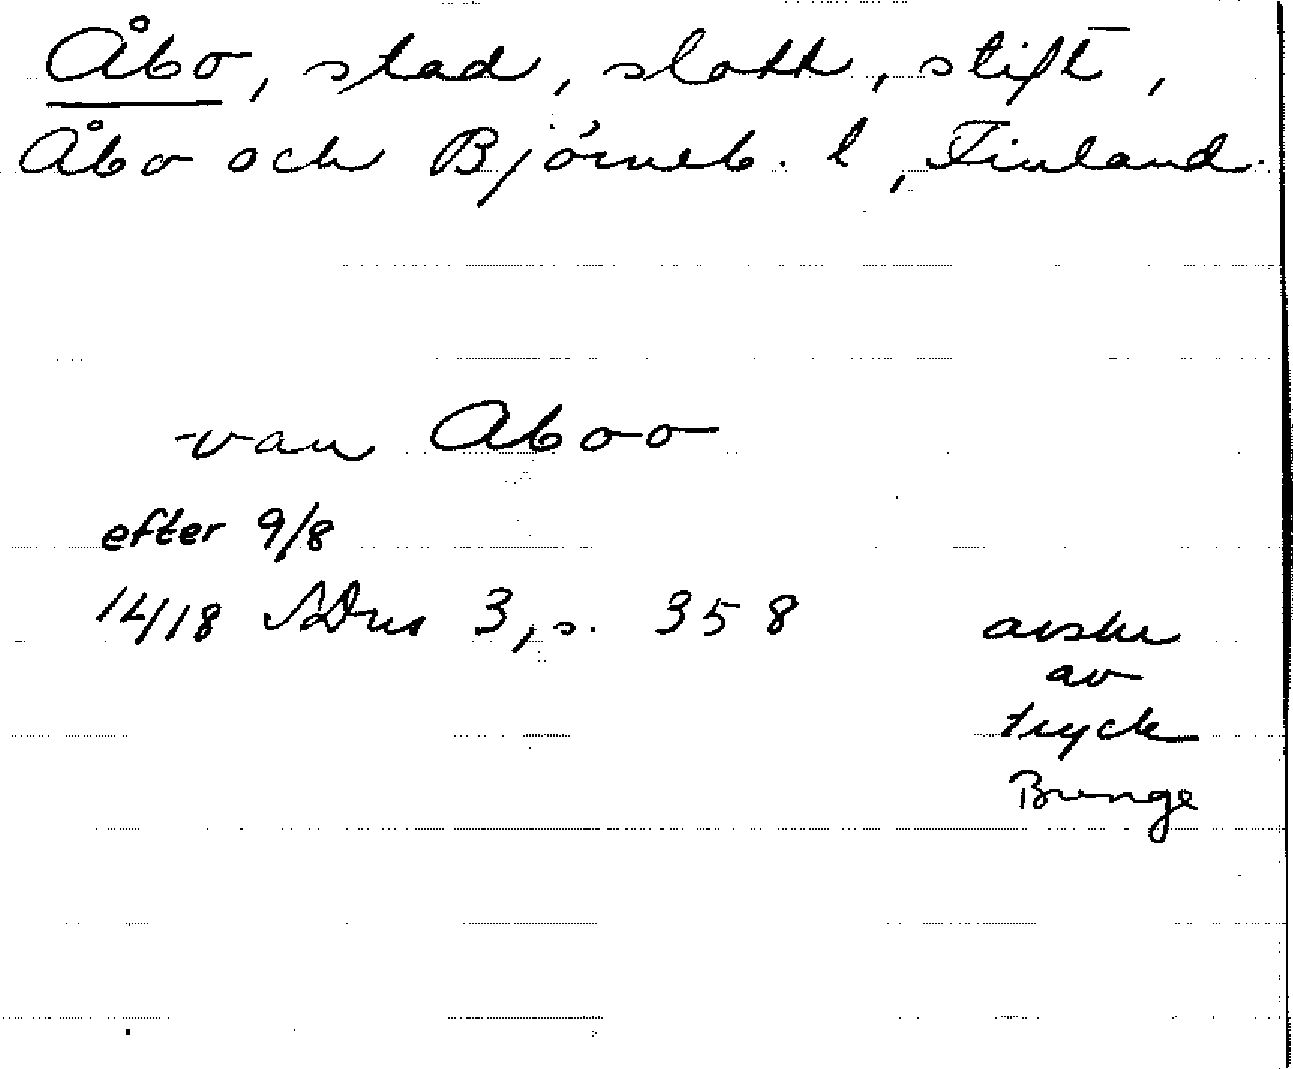 Åbo, stad, slott, stift,
Åbo och Björneb. l, Finland.
van Aboo
efter 9/8
1418 SDns 3, s. 358
avskr
av
tryck
Brunge